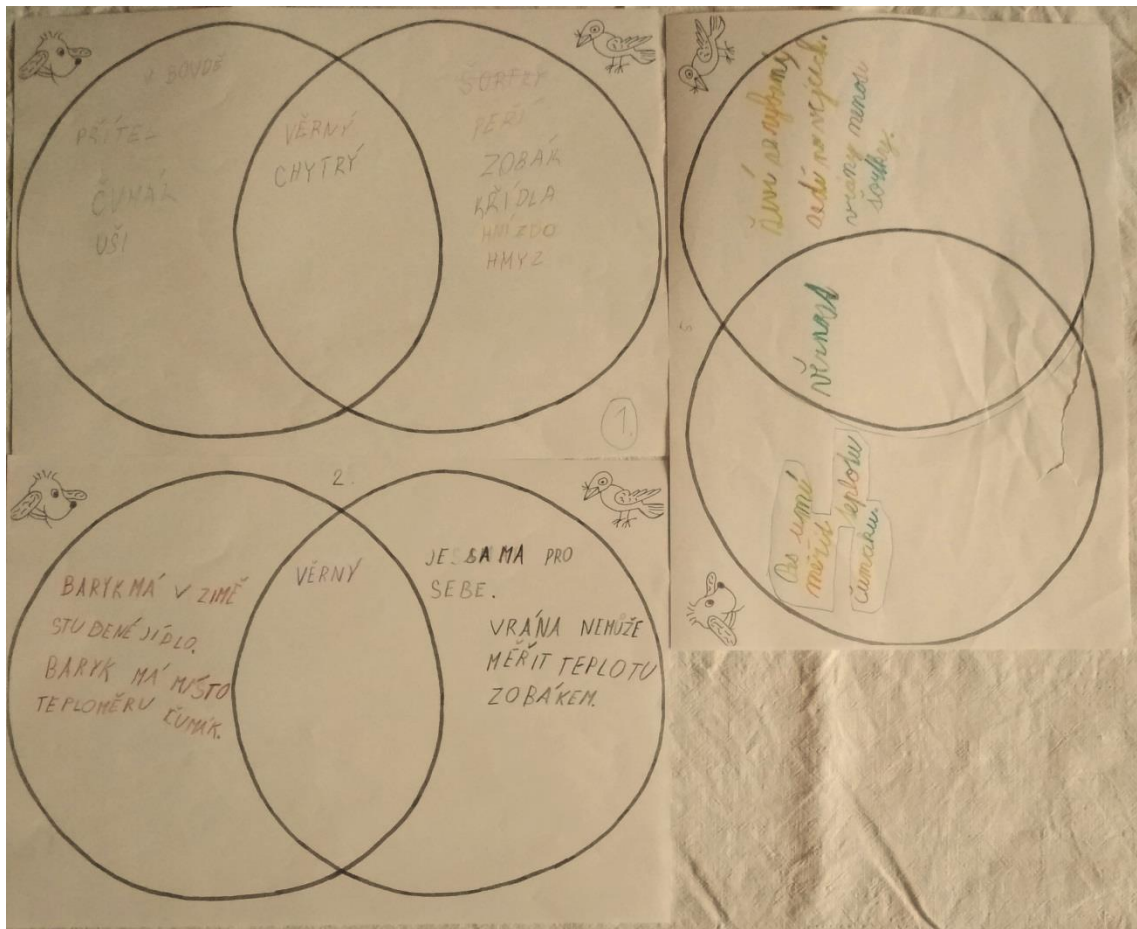 V BOUDĚ
PŘÍTEL
ČUMÁK
UŠI
VĚRNÝ
CHYTRÝ
PEŘÍ
ZOBÁK
KŘÍDLA
HNÍZDO
HMYZ
1.
2.
BARYK MÁ V ZIMĚ
STUDENÉ JÍDLO.
BARYK MÁ MÍSTO
TEPLOMĚRU ČUMÁK.
VĚRNÝ
JE SAMA PRO
SEBE.
VRÁNA NEMŮŽE
MĚŘIT TEPLOTU
ZOBÁKEM.
sedí na vejcích.
vrány nenosí
šortky.
věrnost
Pes umí
měřit teplotu
čumákem.